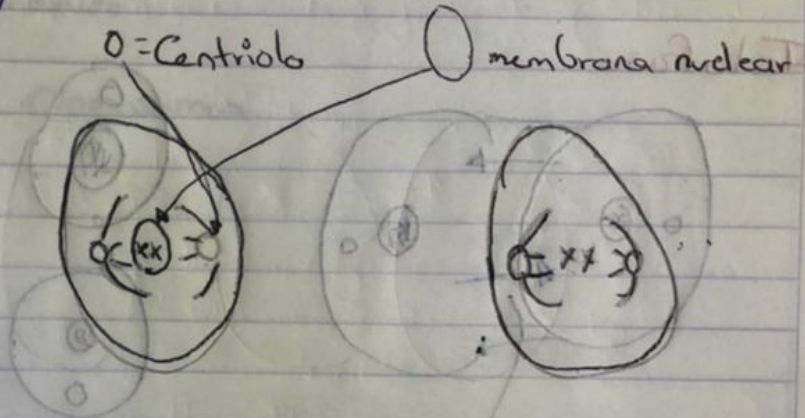 O = Centriolo
membrana nuclear
xx
xx